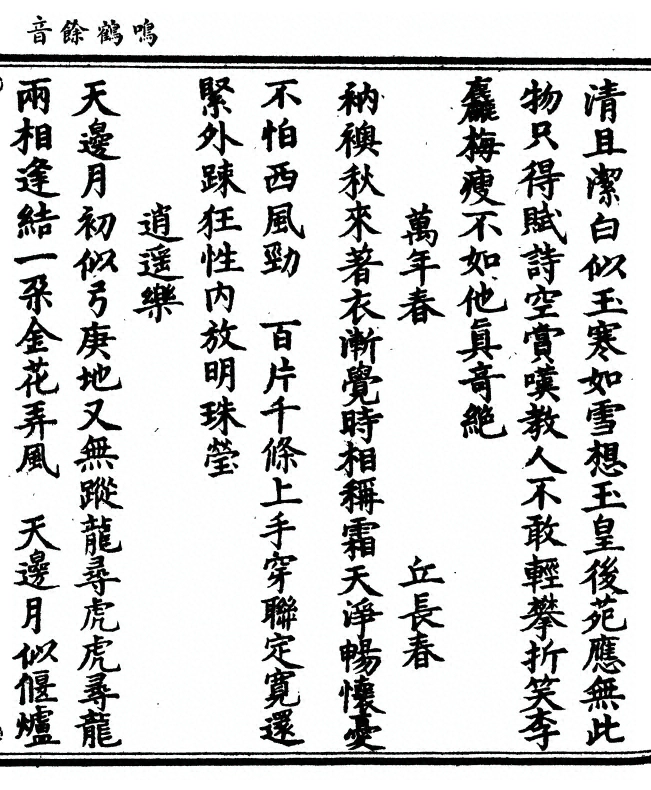 鳴鶴餘音
清且潔白似玉寒如雪想玉皇後苑應無此
物只得賦詩空賞嘆教人不敢輕攀折笑李
麄梅瘦不如他眞竒絶
萬年春 丘長春
衲襖秋來著衣漸覺時相稱霜天淨暢懷憂
不怕西風勁 百片千條上手穿聯定寬還
緊外踈狂性内放明珠瑩
逍遥樂
天邊月初似弓庚地又無蹤龍尋虎虎尋龍
兩相逢結一朶金花弄風 天邊月似偃爐